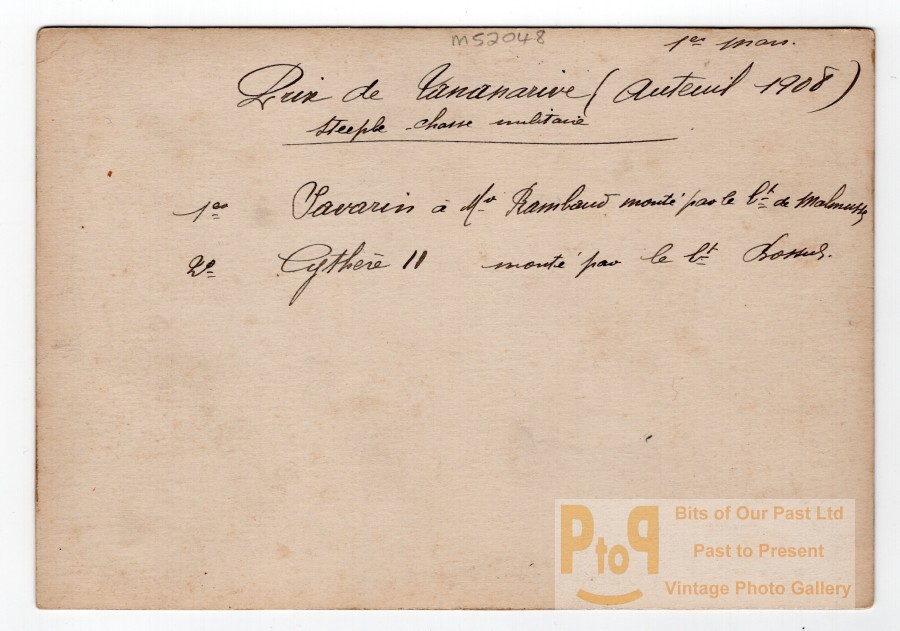 M52048
1er mars.
Prix de Tananarive (Auteuil 1908)
steeple-chasse militaire
1er Tavarin à Mr Rambaud monté par le Lt de
2e Cythère II monté par le Lt
PtoP
Bits of Our Past Ltd
Past to Present
Vintage Photo Gallery